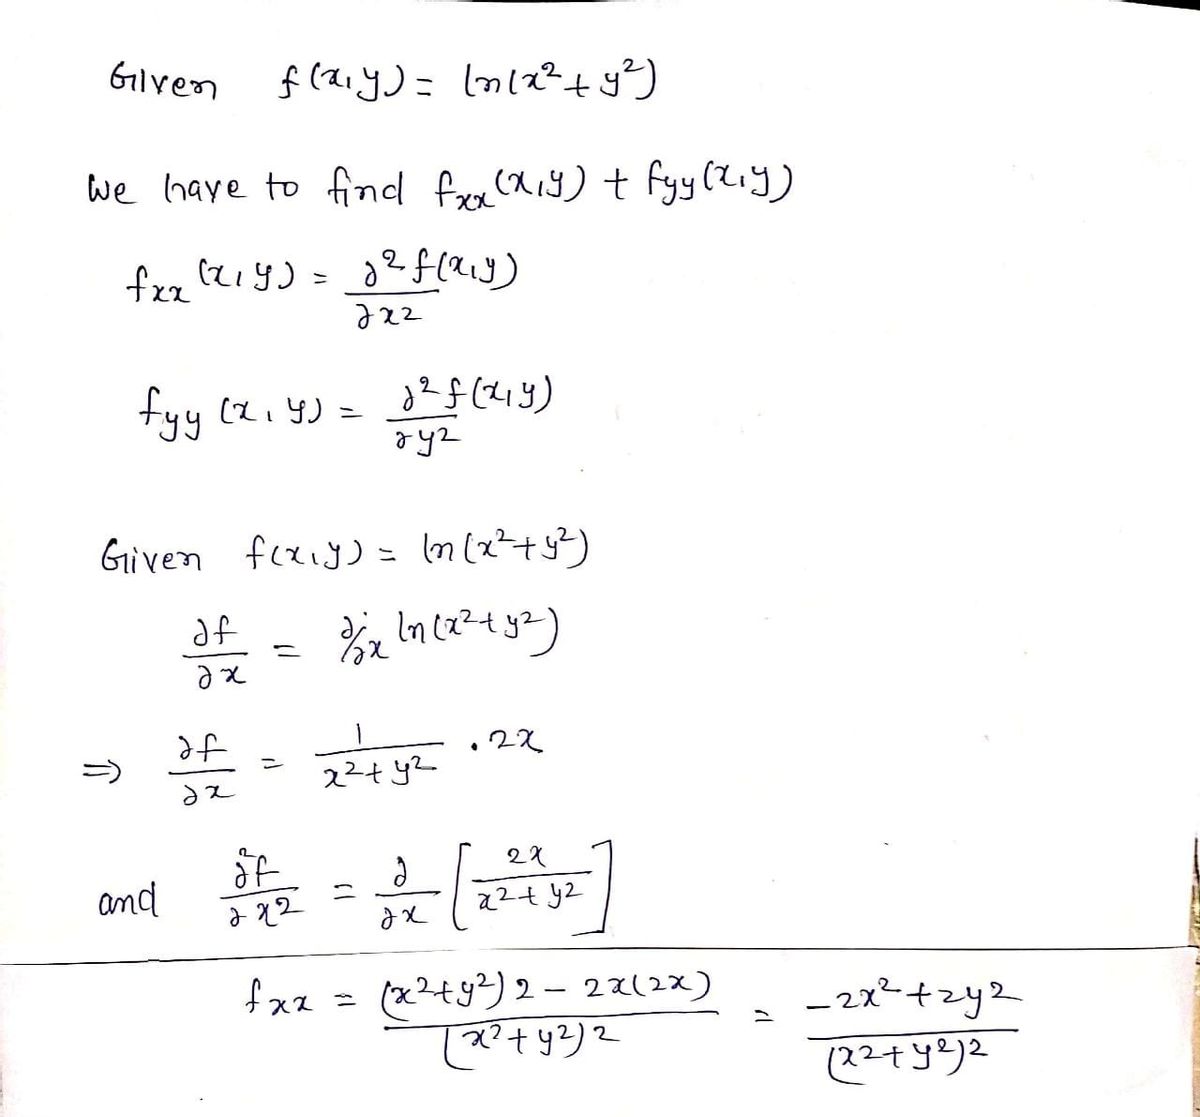 Given f(x,y) = ln(x²+y²)
We have to find fxx(x,y) + fyy(x,y)
fxx(x,y) = ∂²f(x,y)/∂x²
fyy(x,y) = ∂²f(x,y)/∂y²
Given f(x,y) = ln(x²+y²)
∂f/∂x = ∂/∂x ln(x²+y²)
⇒ ∂f/∂x = 1/(x²+y²) · 2x
and ∂²f/∂x² = ∂/∂x [2x/(x²+y²)]
fxx = ((x²+y²)2 - 2x(2x))/(x²+y²)² = (-2x²+2y²)/(x²+y²)²